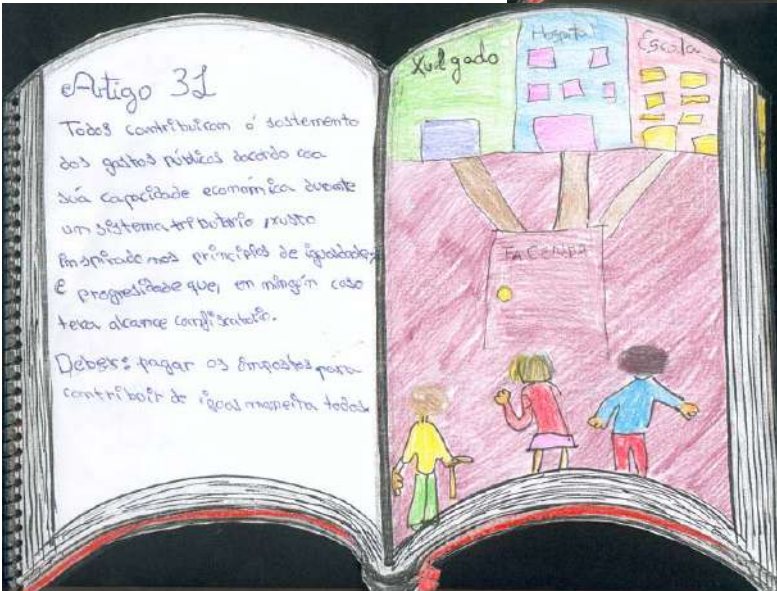 Artigo 31
Todos contribuiran ó sostemento
dos gastos públicos dacordo coa
súa capacidade económica durante
un sistema tributario xusto
inspirado nos principios de igualdade
e progresidade que, en ningún caso
tera alcance confiscatorio.
Deber: pagar os impostos para
contribuir de igual maneira todos
Xulgado
Hospital
Escola
FACENDA